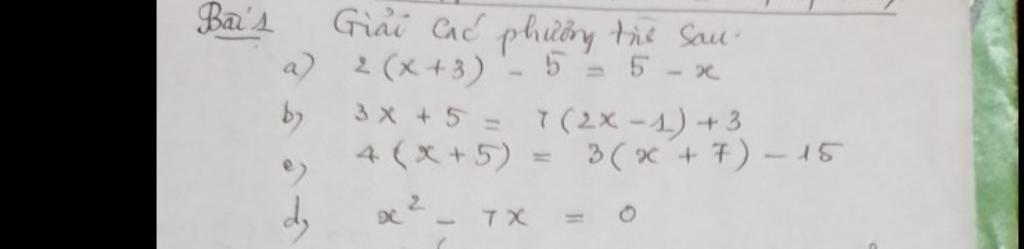 Bài 1 Giải các phương trĩ sau.
a) 2(x+3) - 5 = 5 - x
b) 3x + 5 = 7(2x - 1) + 3
c) 4(x+5) = 3(x + 7) - 15
d) x² - 7x = 0